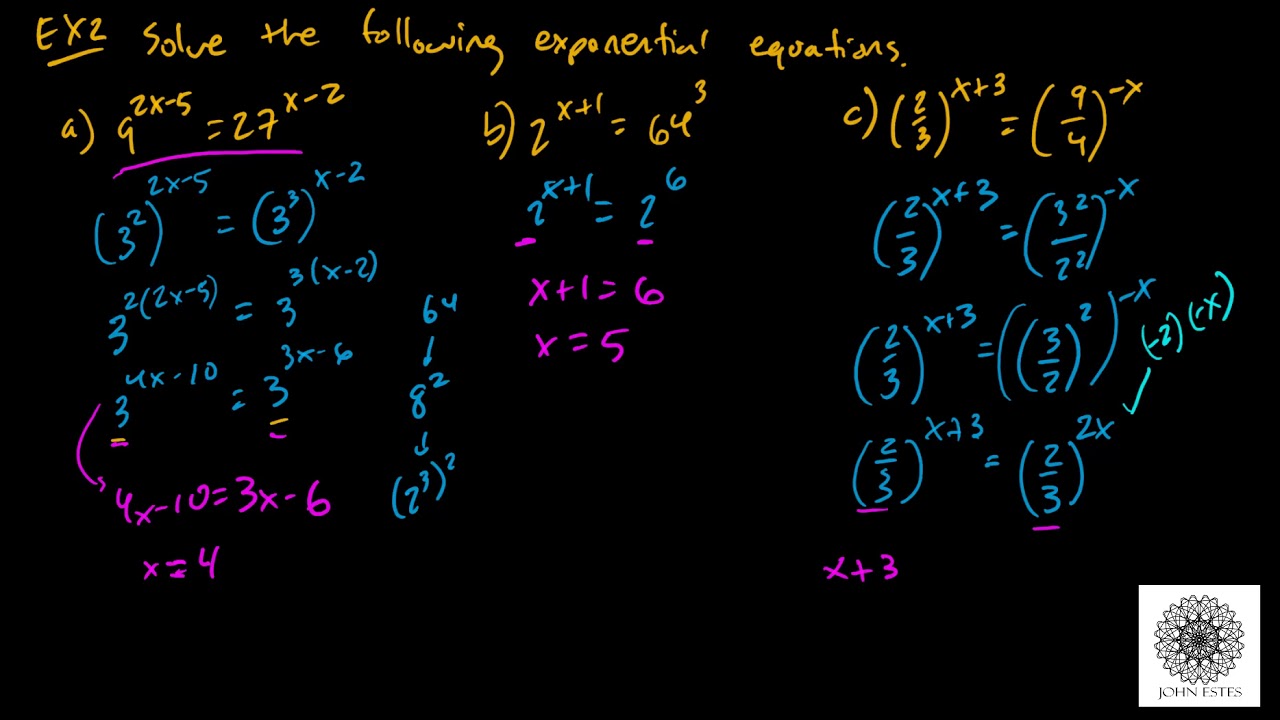 EX2 Solve the following exponential equations.
a) 9^(2x-5) = 27^(x-2)
(3^2)^(2x-5) = (3^3)^(x-2)
3^(2(2x-5)) = 3^(3(x-2))
3^(4x-10) = 3^(3x-6)
4x-10=3x-6
x=4
64
↓
8^2
↓
(2^3)^2
b) 2^(x+1) = 64^3
2^(x+1) = 2^6
x+1=6
x=5
c) (2/3)^(x+3) = (9/4)^(-x)
(2/3)^(x+3) = (3^2/2^2)^(-x)
(2/3)^(x+3) = ((3/2)^2)^(-x)
(-2)(-x)
(2/3)^(x+3) = (2/3)^(2x)
x+3
JOHN ESTES